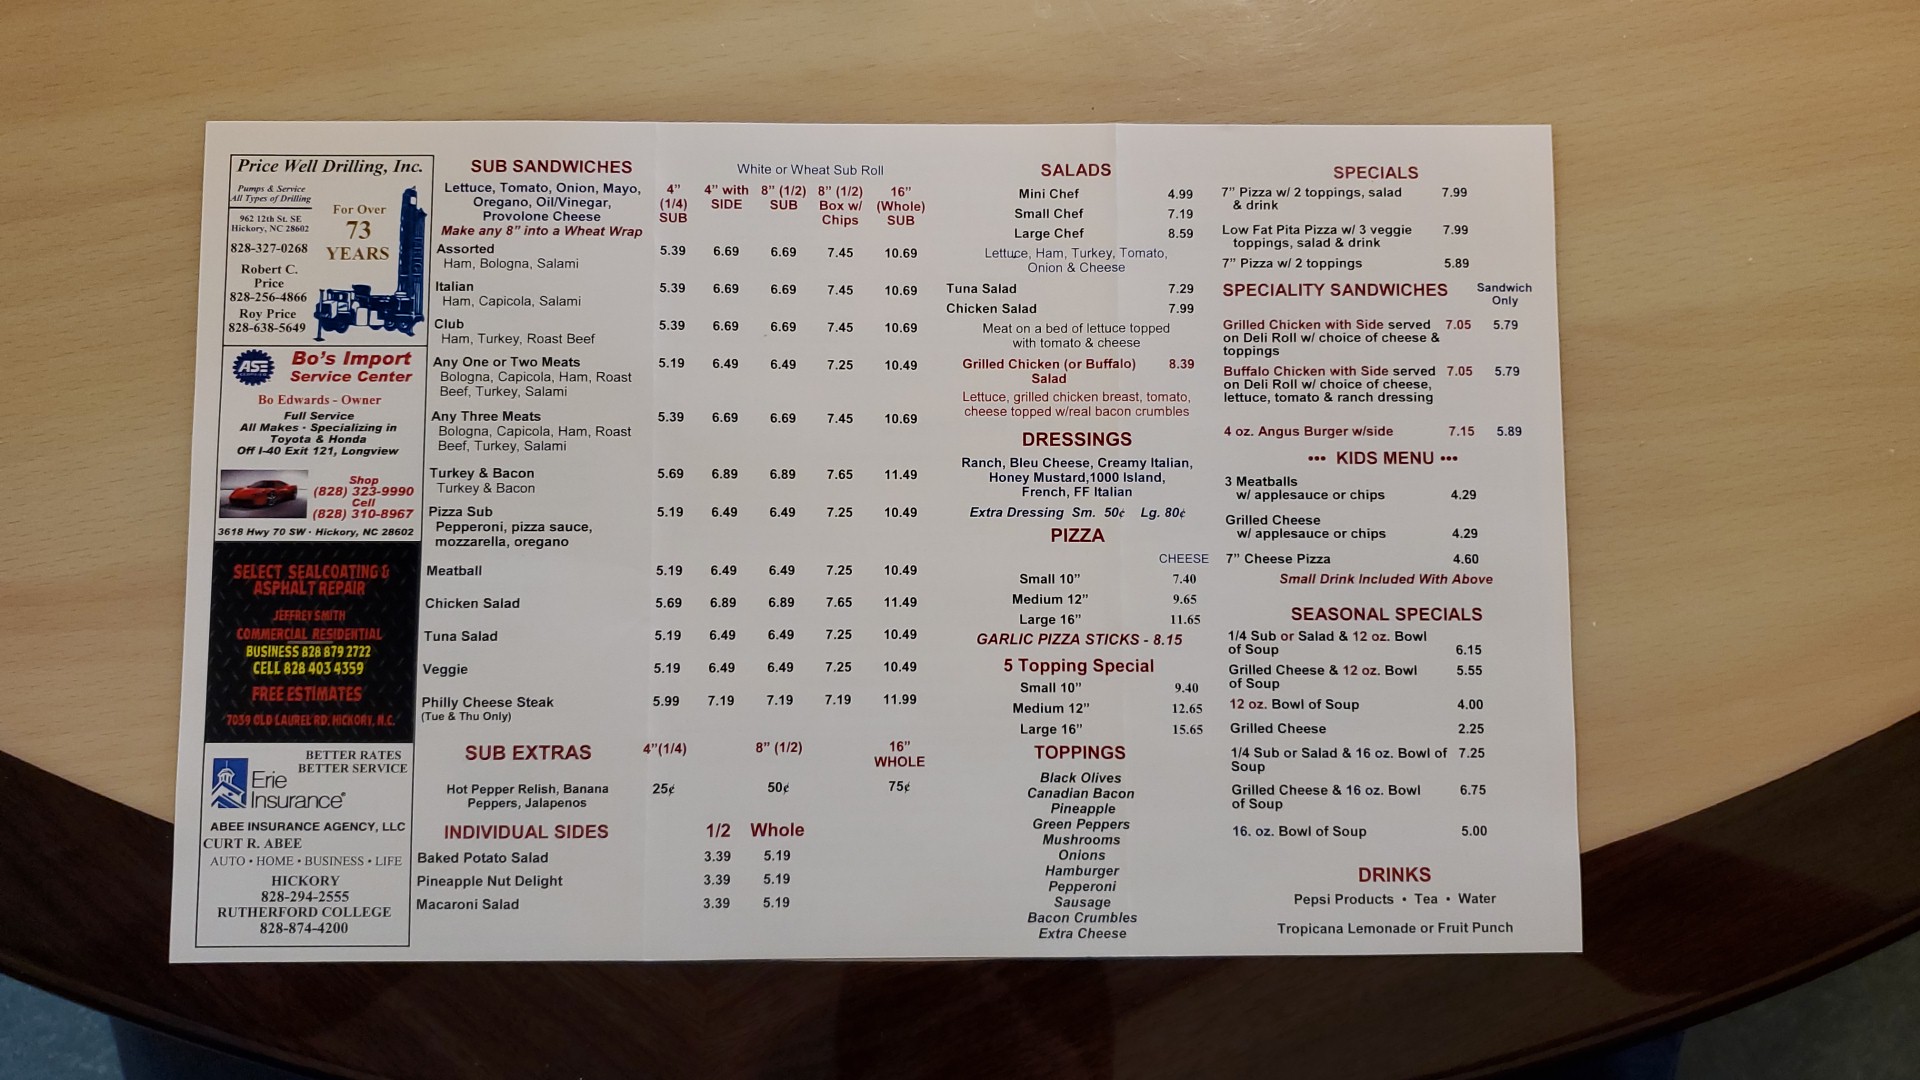 Price Well Drilling, Inc.
Pumps & Service
All Types of Drilling
962 12th St. SE
Hickory, NC 28602
828-327-0268
Robert C.
Price
828-256-4866
Roy Price
828-638-5649
For Over
73
YEARS
ASE
Bo's Import
Service Center
Bo Edwards - Owner
Full Service
All Makes - Specializing in
Toyota & Honda
Off I-40 Exit 121, Longview
Shop
(828) 323-9990
Cell
(828) 310-8967
3618 Hwy 70 SW · Hickory, NC 28602
SELECT SEALCOATING &
ASPHALT REPAIR
JEFFREY SMITH
COMMERCIAL RESIDENTIAL
BUSINESS 828 879 2722
CELL 828 403 4359
FREE ESTIMATES
7039 OLD LAUREL RD, HICKORY, N.C.
BETTER RATES
BETTER SERVICE
Erie
Insurance®
ABEE INSURANCE AGENCY, LLC
CURT R. ABEE
AUTO • HOME • BUSINESS • LIFE
HICKORY
828-294-2555
RUTHERFORD COLLEGE
828-874-4200
SUB SANDWICHES
Lettuce, Tomato, Onion, Mayo,
Oregano, Oil/Vinegar,
Provolone Cheese
Make any 8" into a Wheat Wrap
White or Wheat Sub Roll
4" (1/4) SUB 4" with SIDE 8" (1/2) SUB 8" (1/2) Box w/ Chips 16" (Whole) SUB
Assorted 5.39 6.69 6.69 7.45 10.69
Ham, Bologna, Salami
Italian 5.39 6.69 6.69 7.45 10.69
Ham, Capicola, Salami
Club 5.39 6.69 6.69 7.45 10.69
Ham, Turkey, Roast Beef
Any One or Two Meats 5.19 6.49 6.49 7.25 10.49
Bologna, Capicola, Ham, Roast
Beef, Turkey, Salami
Any Three Meats 5.39 6.69 6.69 7.45 10.69
Bologna, Capicola, Ham, Roast
Beef, Turkey, Salami
Turkey & Bacon 5.69 6.89 6.89 7.65 11.49
Turkey & Bacon
Pizza Sub 5.19 6.49 6.49 7.25 10.49
Pepperoni, pizza sauce,
mozzarella, oregano
Meatball 5.19 6.49 6.49 7.25 10.49
Chicken Salad 5.69 6.89 6.89 7.65 11.49
Tuna Salad 5.19 6.49 6.49 7.25 10.49
Veggie 5.19 6.49 6.49 7.25 10.49
Philly Cheese Steak 5.99 7.19 7.19 7.19 11.99
(Tue & Thu Only)
SUB EXTRAS 4"(1/4) 8" (1/2) 16" WHOLE
Hot Pepper Relish, Banana 25¢ 50¢ 75¢
Peppers, Jalapenos
INDIVIDUAL SIDES 1/2 Whole
Baked Potato Salad 3.39 5.19
Pineapple Nut Delight 3.39 5.19
Macaroni Salad 3.39 5.19
SALADS
Mini Chef 4.99
Small Chef 7.19
Large Chef 8.59
Lettuce, Ham, Turkey, Tomato,
Onion & Cheese
Tuna Salad 7.29
Chicken Salad 7.99
Meat on a bed of lettuce topped
with tomato & cheese
Grilled Chicken (or Buffalo) 8.39
Salad
Lettuce, grilled chicken breast, tomato,
cheese topped w/real bacon crumbles
DRESSINGS
Ranch, Bleu Cheese, Creamy Italian,
Honey Mustard,1000 Island,
French, FF Italian
Extra Dressing Sm. 50¢ Lg. 80¢
PIZZA
CHEESE
Small 10" 7.40
Medium 12" 9.65
Large 16" 11.65
GARLIC PIZZA STICKS - 8.15
5 Topping Special
Small 10" 9.40
Medium 12" 12.65
Large 16" 15.65
TOPPINGS
Black Olives
Canadian Bacon
Pineapple
Green Peppers
Mushrooms
Onions
Hamburger
Pepperoni
Sausage
Bacon Crumbles
Extra Cheese
SPECIALS
7" Pizza w/ 2 toppings, salad 7.99
& drink
Low Fat Pita Pizza w/ 3 veggie 7.99
toppings, salad & drink
7" Pizza w/ 2 toppings 5.89
SPECIALITY SANDWICHES Sandwich Only
Grilled Chicken with Side served 7.05 5.79
on Deli Roll w/ choice of cheese &
toppings
Buffalo Chicken with Side served 7.05 5.79
on Deli Roll w/ choice of cheese,
lettuce, tomato & ranch dressing
4 oz. Angus Burger w/side 7.15 5.89
••• KIDS MENU •••
3 Meatballs
w/ applesauce or chips 4.29
Grilled Cheese
w/ applesauce or chips 4.29
7" Cheese Pizza 4.60
Small Drink Included With Above
SEASONAL SPECIALS
1/4 Sub or Salad & 12 oz. Bowl
of Soup 6.15
Grilled Cheese & 12 oz. Bowl 5.55
of Soup
12 oz. Bowl of Soup 4.00
Grilled Cheese 2.25
1/4 Sub or Salad & 16 oz. Bowl of 7.25
Soup
Grilled Cheese & 16 oz. Bowl 6.75
of Soup
16. oz. Bowl of Soup 5.00
DRINKS
Pepsi Products • Tea • Water
Tropicana Lemonade or Fruit Punch